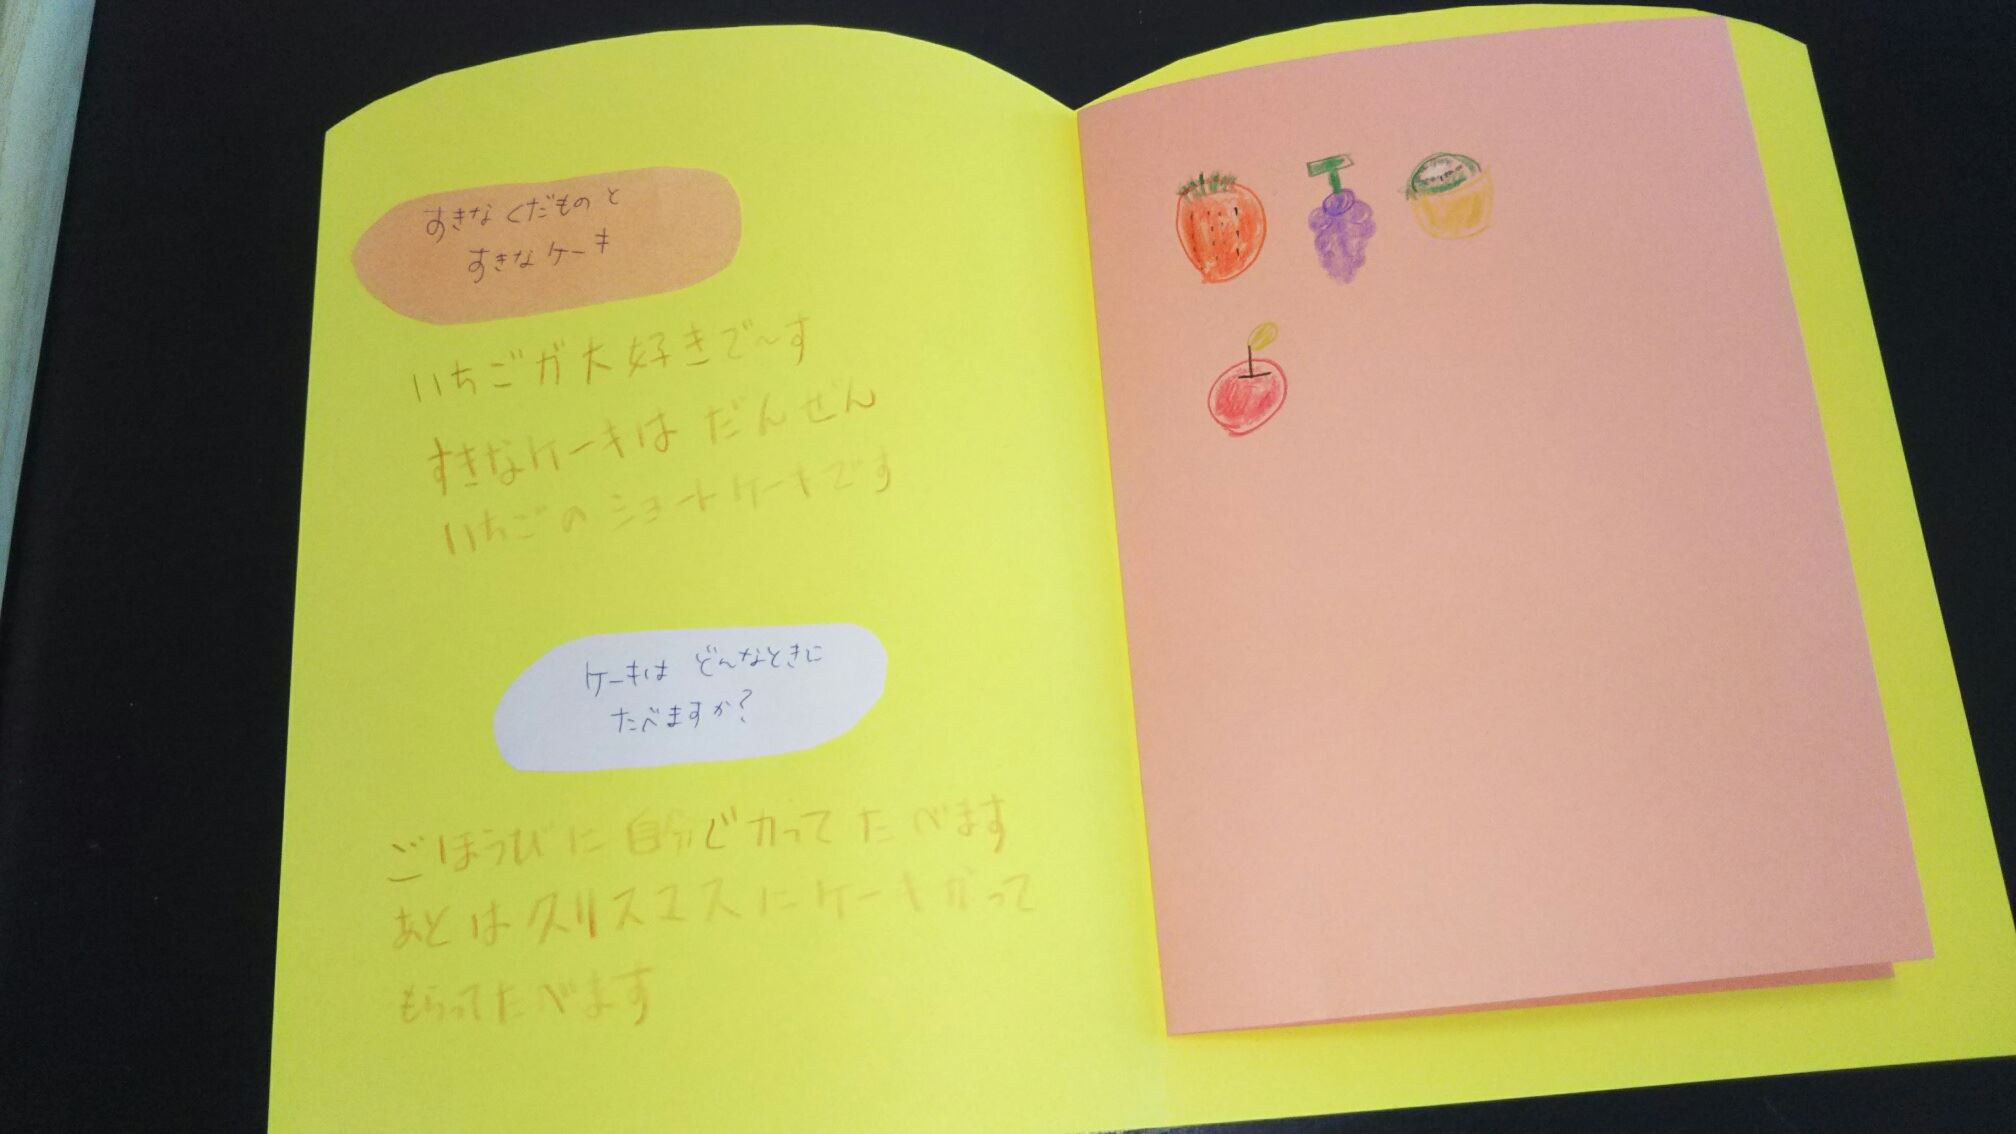 すきな くだものと
すきなケーキ
いちごが大好きで〜す
すきなケーキは だんぜん
いちごのショートケーキです
ケーキは どんなときに
たべますか?
ごほうびに自分でカってたべます
あとはクリスマスにケーキかって
もらってたべます